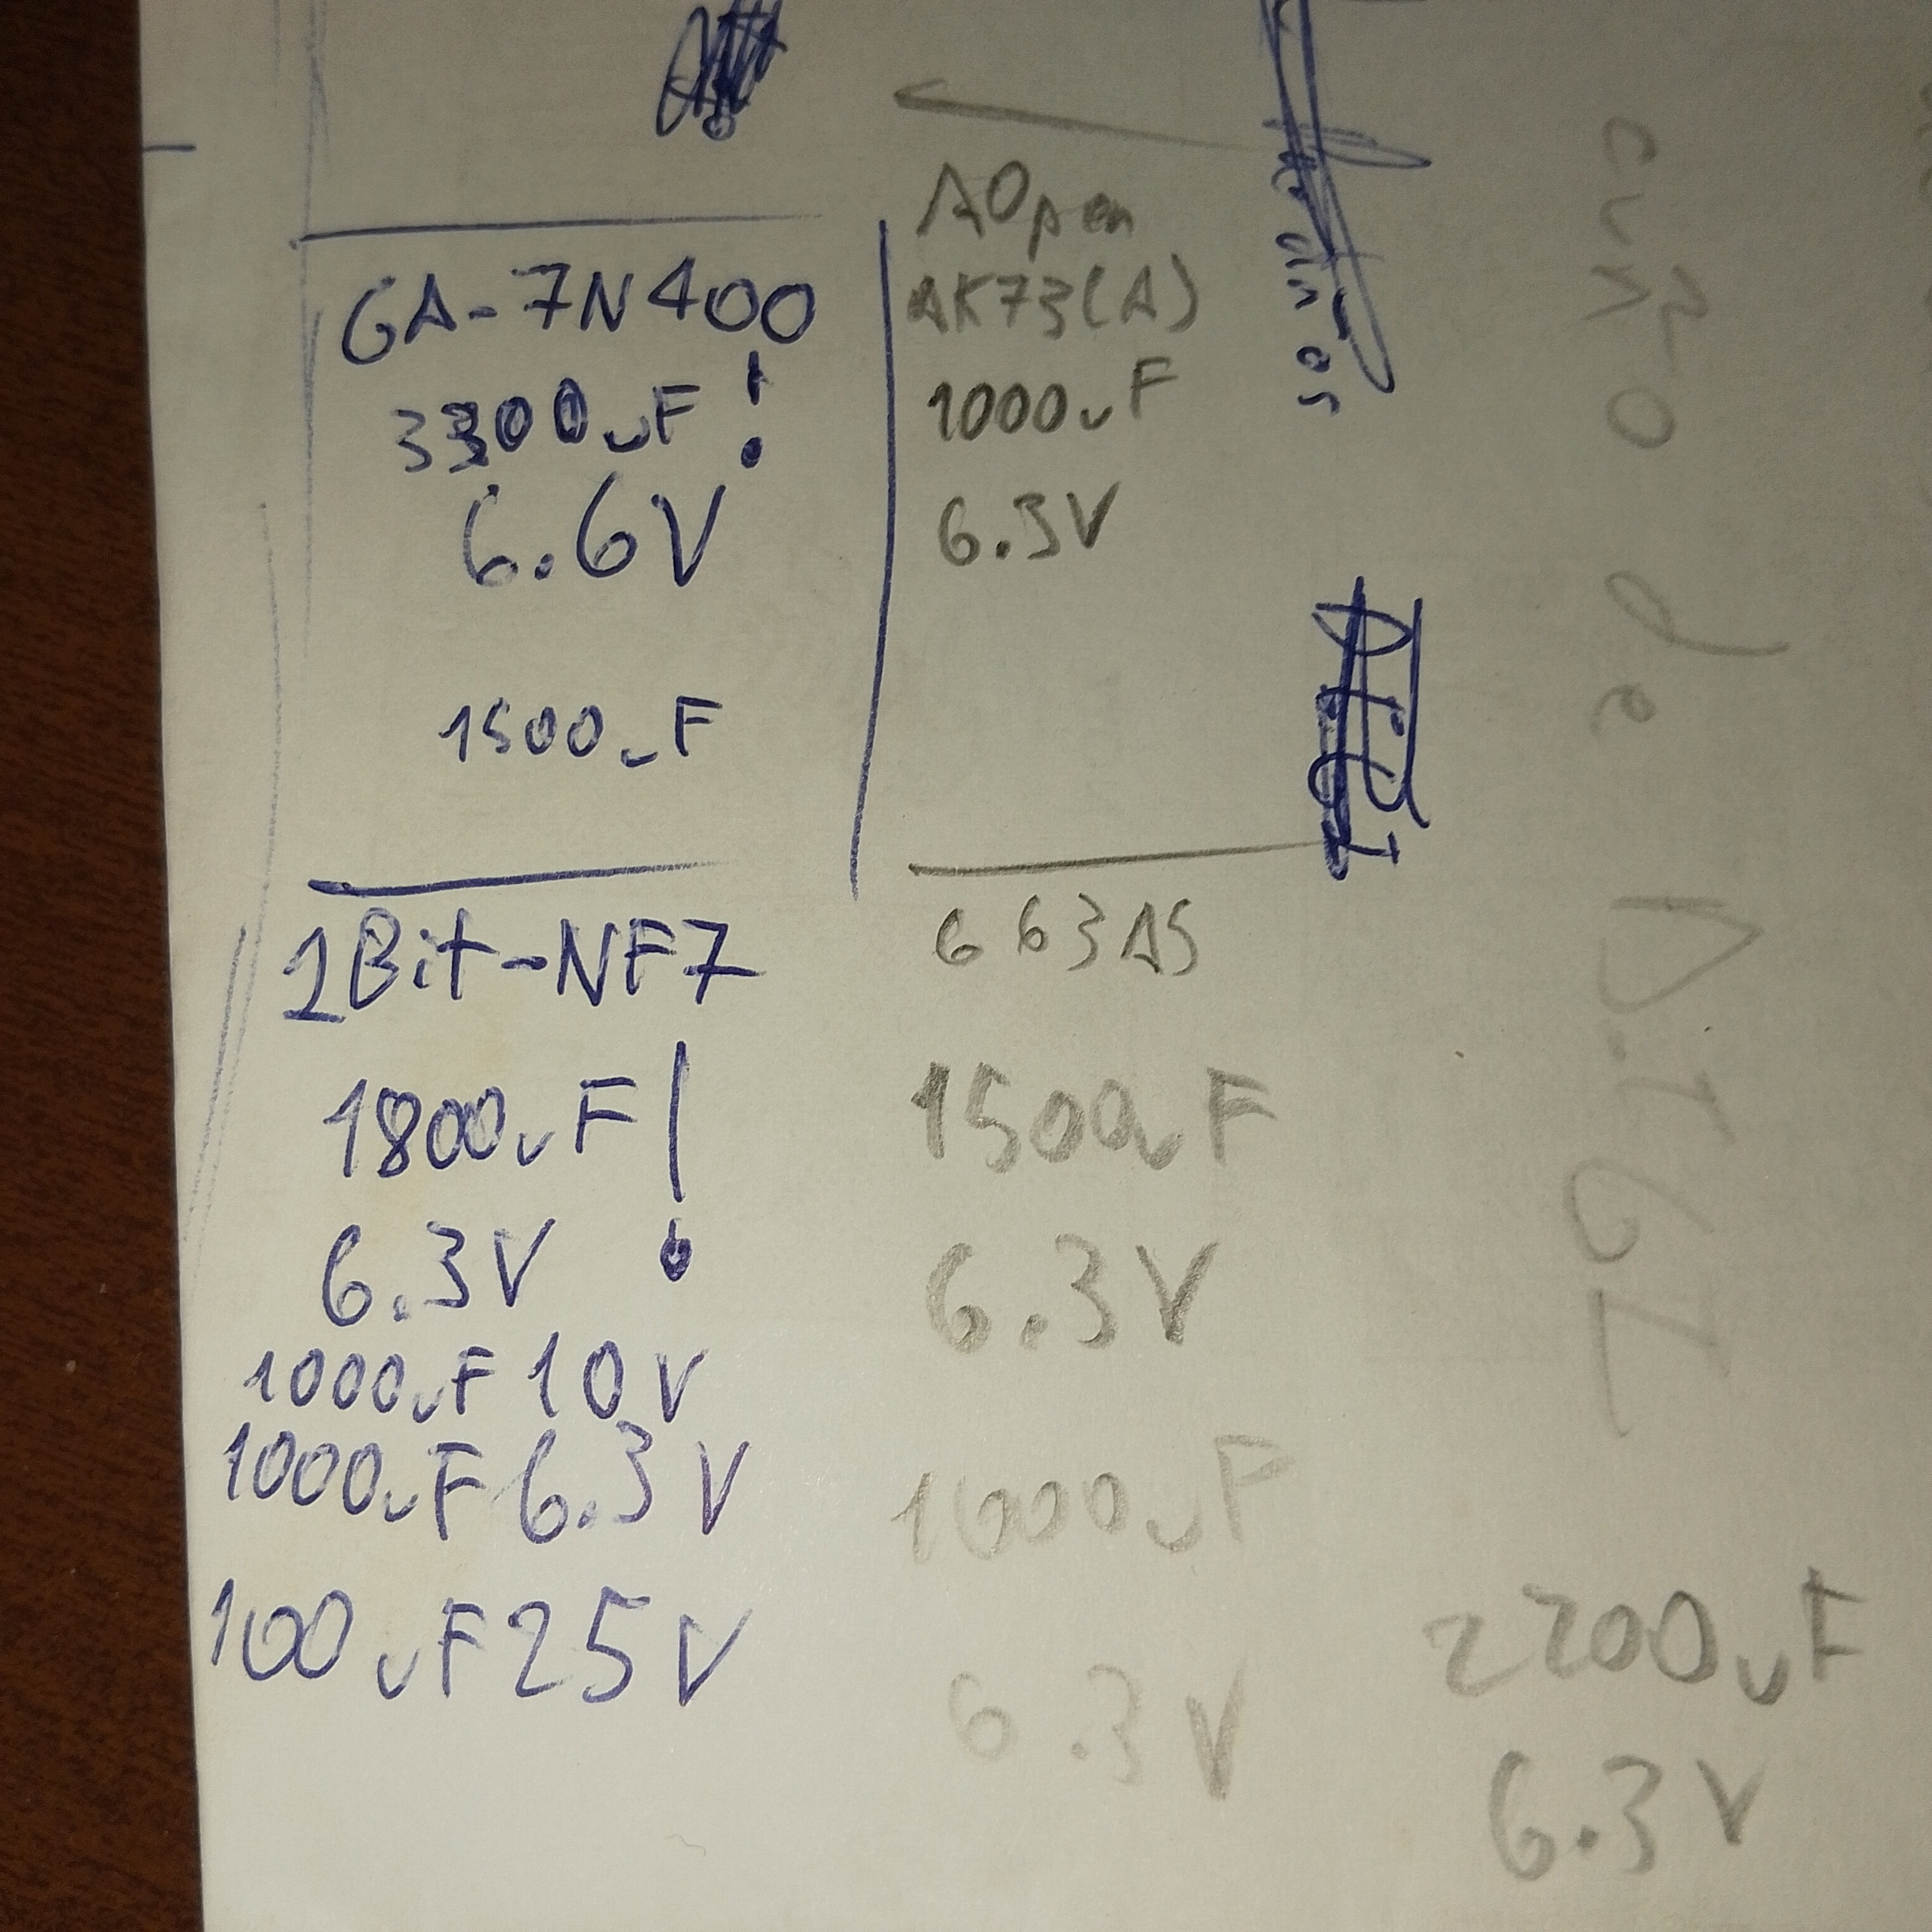 GA-7N400
3300uF !
6.6V
1500uF
1Bit-NF7
1800uF !
6.3V
1000uF 10V
1000uF 6.3V
100uF 25V
AOpen
AK73(A)
1000uF
6.3V
663AS
1500uF
6.3V
1000uF
6.3V
2200uF
6.3V